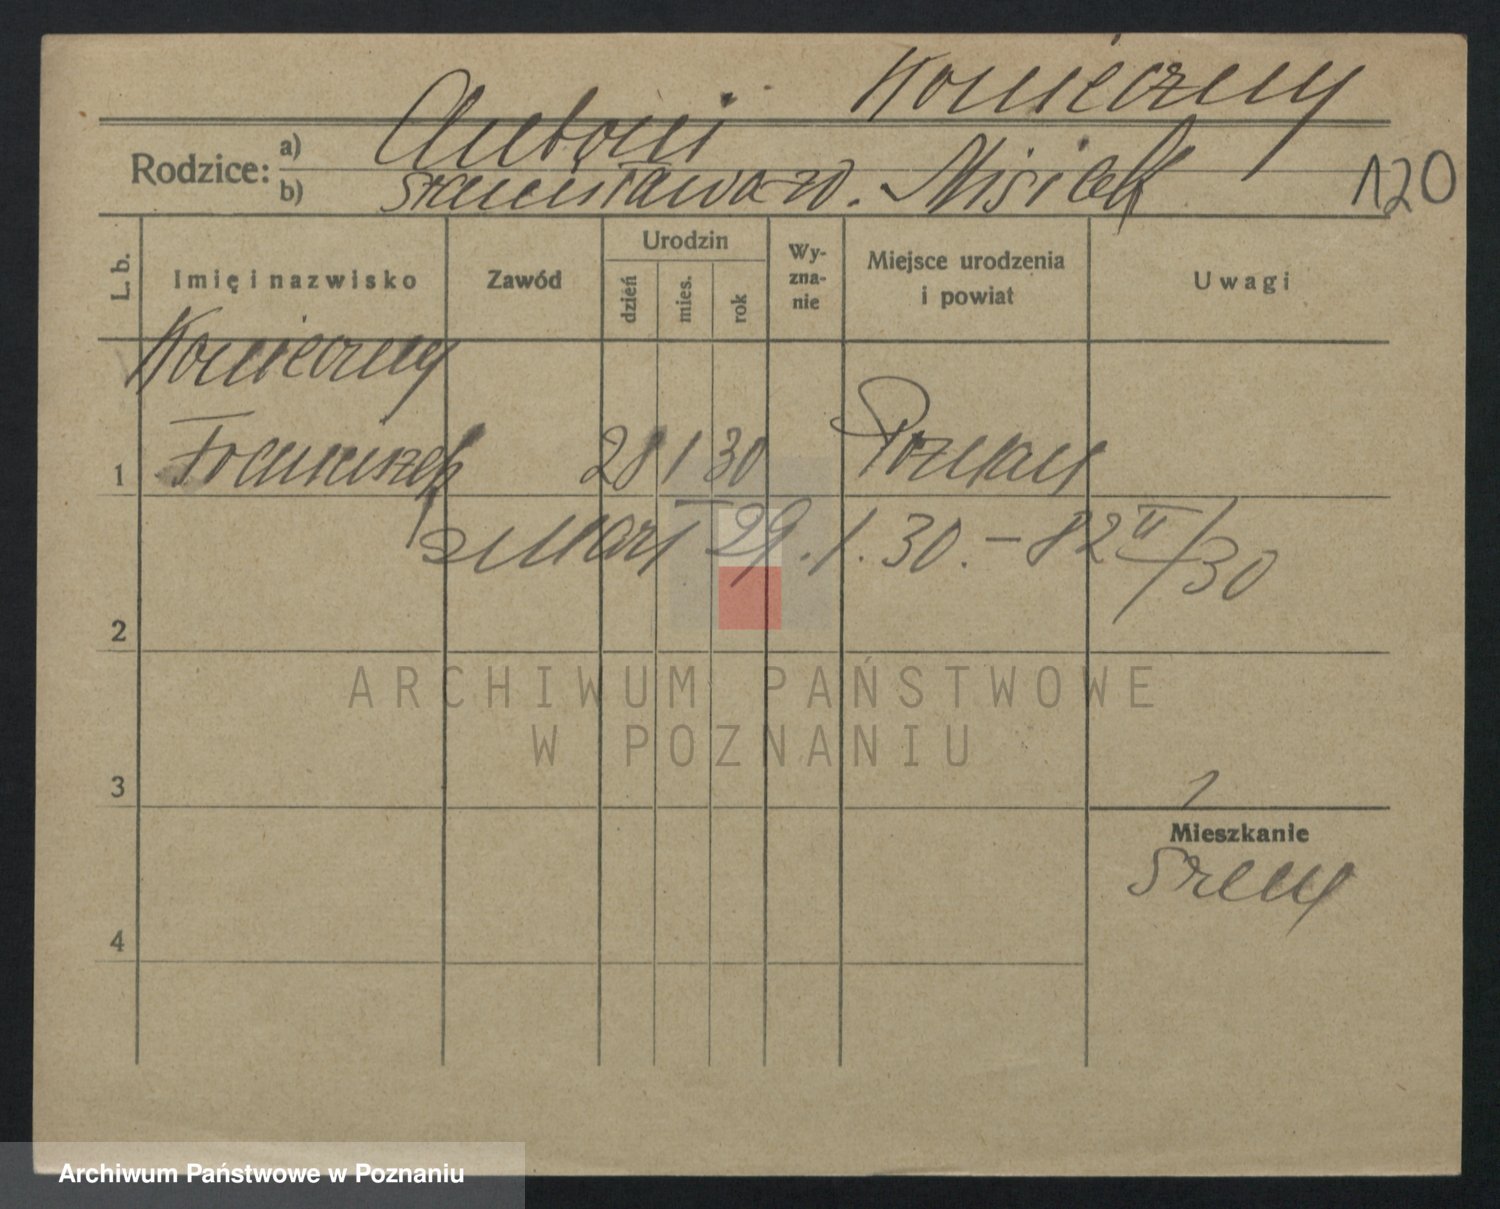 Konieczny
Rodzice: a) Antoni
b) Stanisława z d. Misiak
120
L. b.
Imię i nazwisko
Zawód
Urodzin
dzień
mies.
rok
Wy-
zna-
nie
Miejsce urodzenia
i powiat
Uwagi
Konieczny
1 Franciszek 28 1 30 Poznań
zmarł 29.1.30. – 82 II/30
2
3
4
Mieszkanie
Śrem
ARCHIWUM PAŃSTWOWE
W POZNANIU
Archiwum Państwowe w Poznaniu